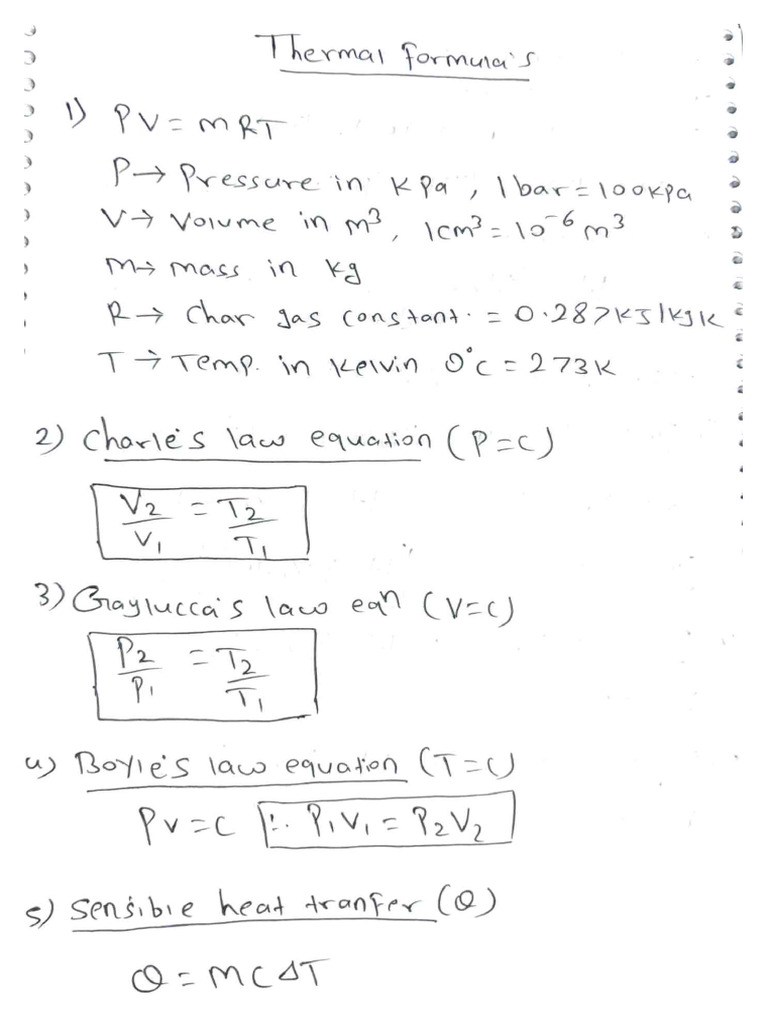 Thermal formula's
1) PV = mRT
P → Pressure in KPa, 1 bar = 100KPa
V → Volume in m³, 1cm³ = 10⁻⁶ m³
M → mass in kg
R → Char gas constant. = 0.287KJ/kgK
T → Temp. in Kelvin 0°C = 273K
2) Charle's law equation (P=C)
V₂/V₁ = T₂/T₁
3) Graylucca's law eqn (V=C)
P₂/P₁ = T₂/T₁
4) Boyle's law equation (T=C)
PV=C ∴ P₁V₁ = P₂V₂
5) Sensible heat tranfer (Q)
Q = MCΔT